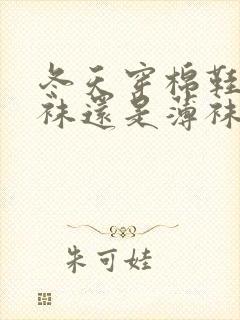 冬天穿棉鞋
袜還是薄袜
朱可娃